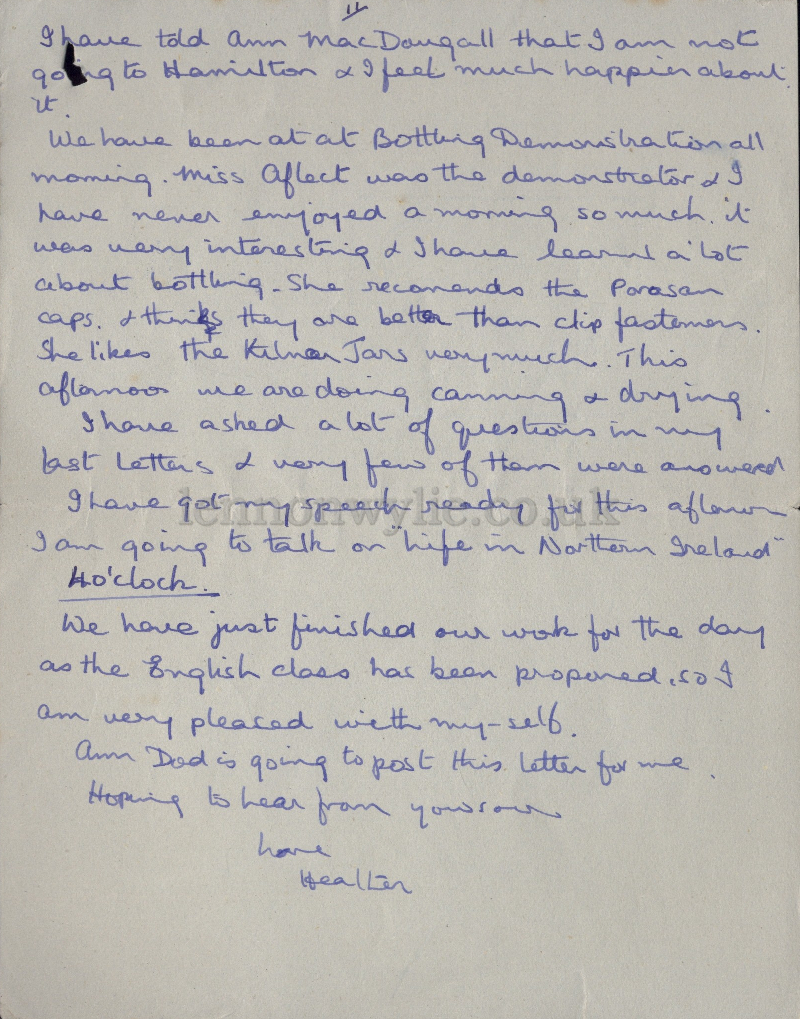 11
I have told Ann MacDougall that I am not
going to Hamilton & I feel much happier about
it.
We have been at at Bottling Demonstration all
morning. Miss Aflect was the demonstrator & I
have never enjoyed a morning so much. it
was very interesting & I have learnt a lot
about bottling. She recomends the Porosan
caps. & thinks they are better than clip fasteners.
She likes the Kilner Jars very much. This
afternoon we are doing canning & drying.
I have asked a lot of questions in my
last letters & very few of them were answered
I have got my speech ready for this afternoon
I am going to talk on "Life in Northern Ireland"
4 o'clock.
We have just finished our work for the day
as the English class has been proponed, so I
am very pleased with my-self.
Ann Dod is going to post this letter for me.
Hoping to hear from you soon
Love
Heather
lennonwylie.co.uk